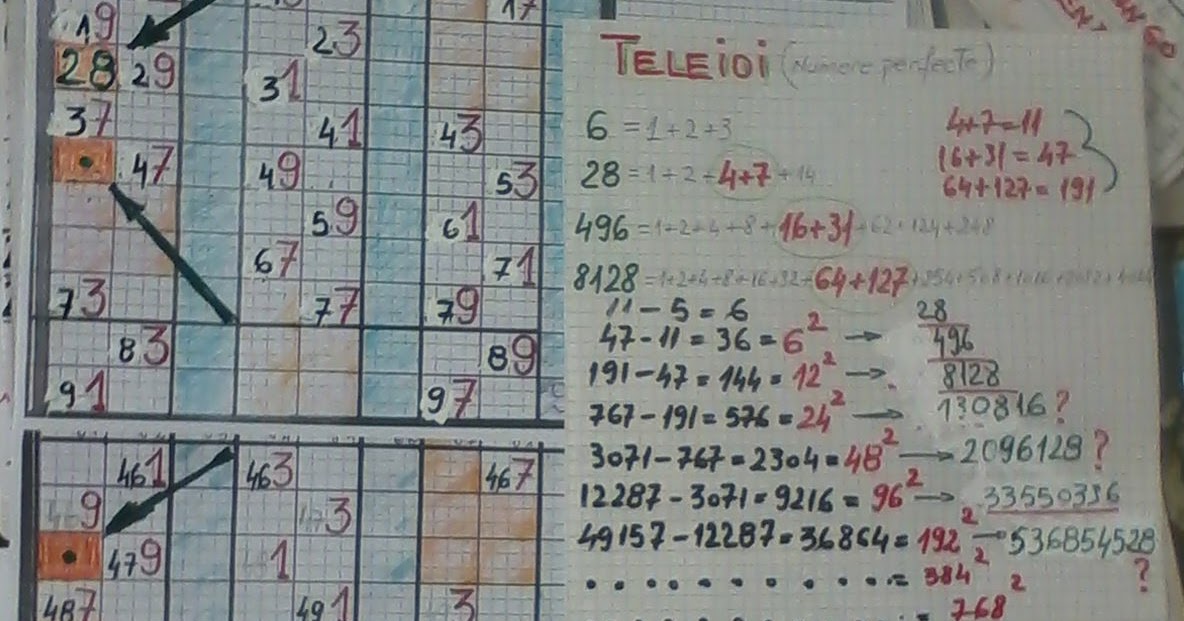 17
19
23
28 29
31
37
41 43
47 49
53
59 61
67
71
73 77 79
83 89
91 97
461 463 467
9 3
479 1
487 491 3
TELEIOI (Numere perfecte)
6 = 1+2+3
28 = 1+2+4+7+14
496 = 1+2+4+8+16+31+62+124+248
8128 = 1+2+4+8+16+32+64+127+254+508+1016+2032+
4+7=11
16+31=47
64+127=191
11-5=6
47-11=36=6² → 28
496
191-47=144=12² → 8128
767-191=576=24² → 130816?
3071-767=2304=48² → 2096128?
12287-3071=9216=96² → 33550336
49157-12287=36864=192² → 536854528
?
............=384²
.=768²